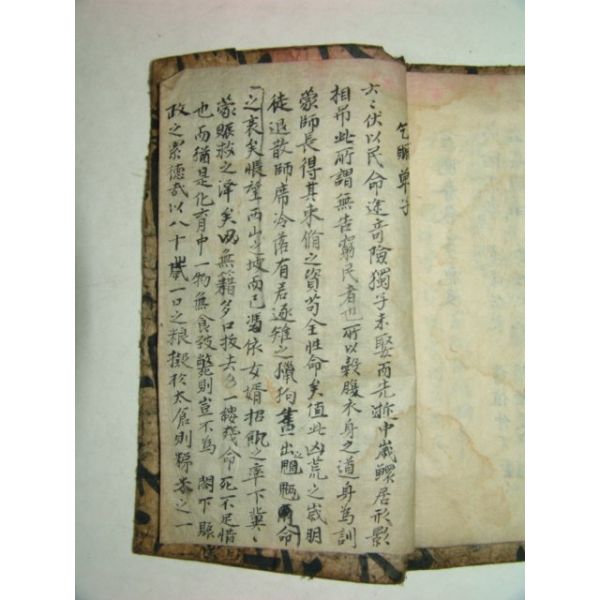 乞賑單子
六〻伏以民命途奇險獨子未娶而先逝中歲鰥居形影
相吊此所謂無告窮民者也所以穀腹衣身之道身為訓
蒙師長得其束脩之資苟全性命矣值此凶荒之歲明
徒退散師席冷落有若逐雉之獵狗晝出 命
之哀矣悵望西山之坡而已憑依女婿招 之率下冀〻
蒙賑救之澤矣因無籍多口拔去 一縷殘命死不足惜
也而猶是化育中一物無食 斃則豈不為 閤下賑
政之累德哉以八十歲一口之粮擬於太倉則稊米之一